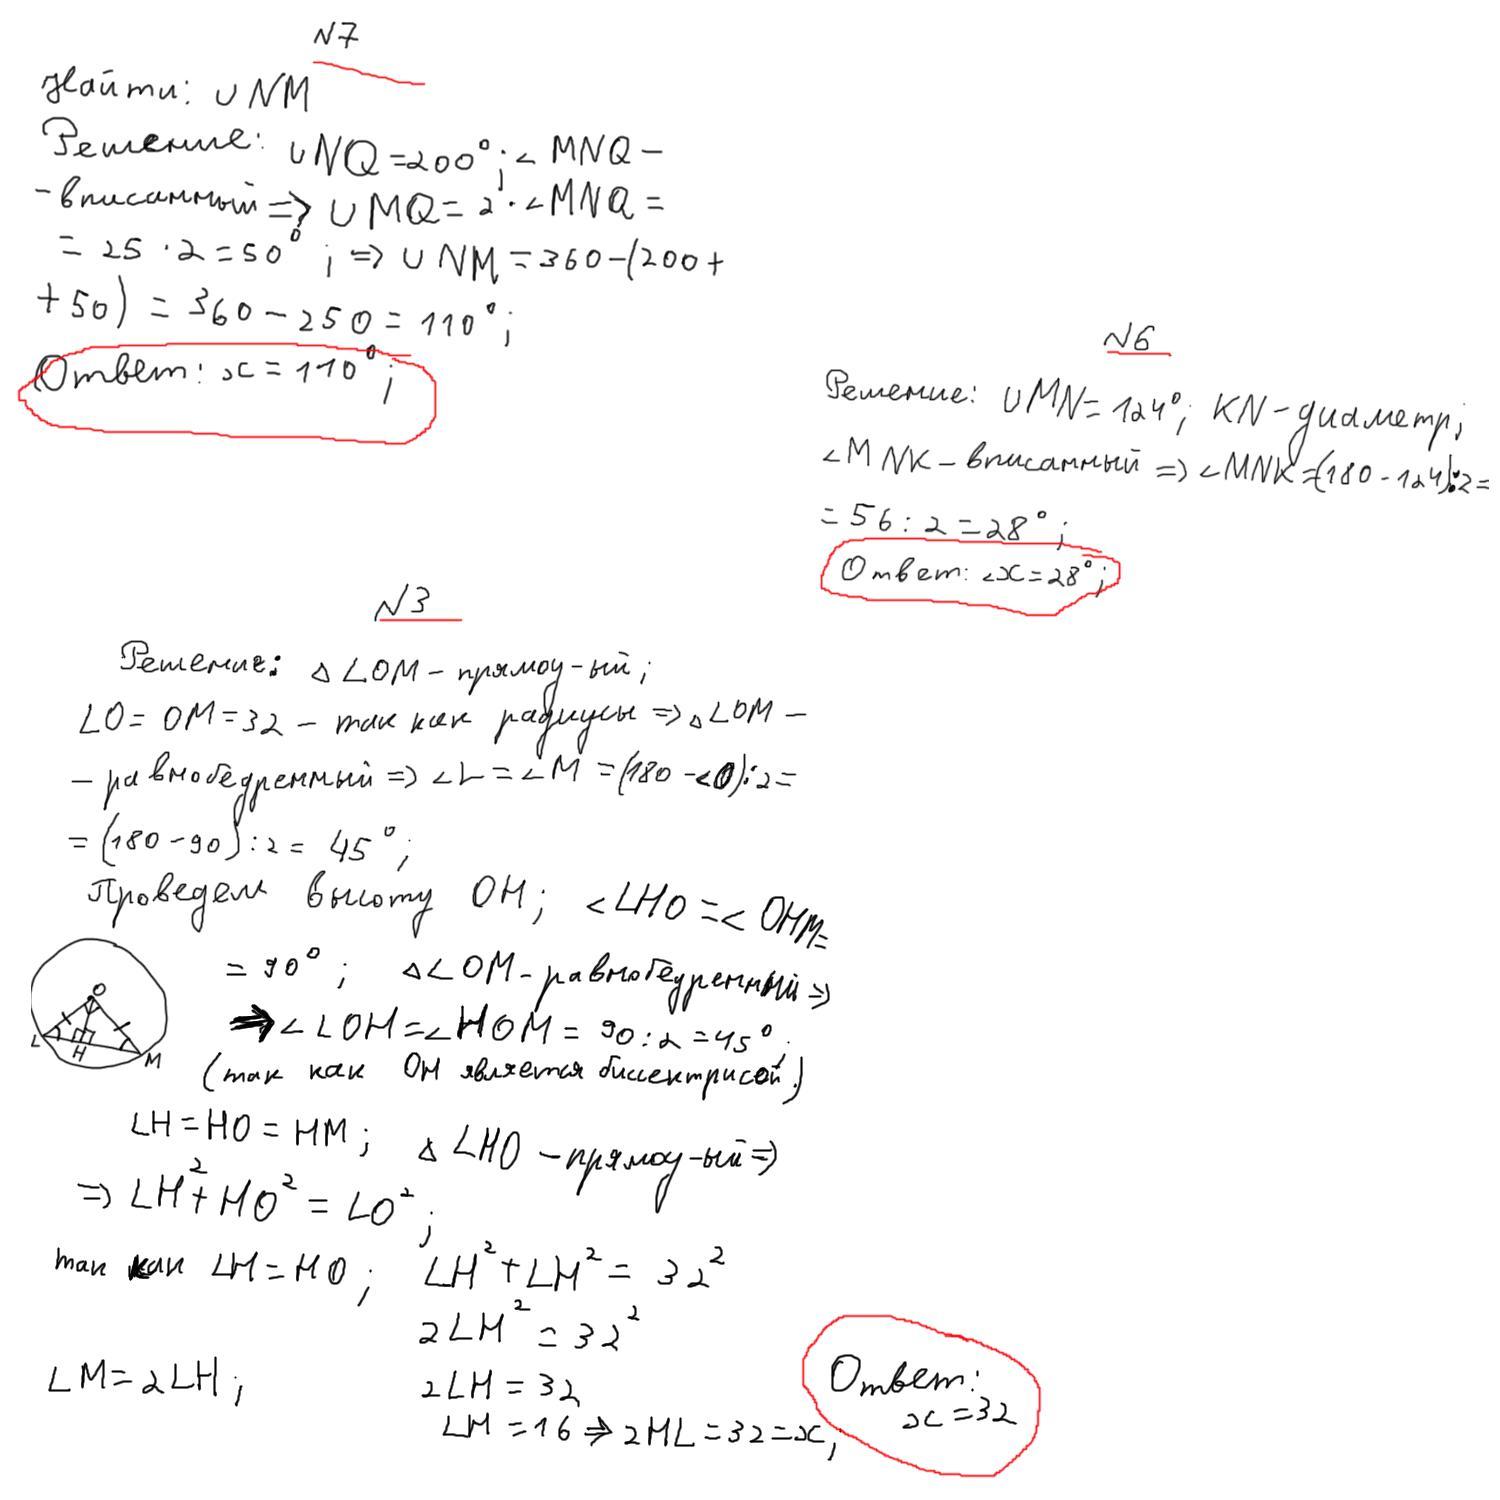 N7
Найти: ∪NM
Решение: ∪NQ=200°; ∠MNQ –
– вписанный => ∪MQ = 2·∠MNQ =
= 25·2=50°; => ∪NM = 360–(200+
+50) = 360–250 = 110°;
Ответ: x = 110°;
N6
Решение: ∪MN=124°; KN–диаметр;
∠MNK–вписанный => ∠MNK=(180–124):2=
= 56:2=28°;
Ответ: ∠x=28°;
N3
Решение: △LOM – прямоу-ый;
LO = OM = 32 – так как радиусы => △LOM –
– равнобедренный => ∠L = ∠M = (180–∠O):2=
= (180–90):2 = 45°;
Проведем высоту OH; ∠LHO = ∠OHM=
= 90°; △LOM–равнобедренный =>
=> ∠LOH=∠HOM = 90:2=45°;
(так как OH является биссектрисой)
O
L
H
M
LH=HO=HM; △LHO –прямоу-ый =>
=> LH²+HO² = LO²;
так как LH=HO; LH²+LH² = 32²
2LH² = 32²
LM=2LH; 2LH = 32
LH = 16 => 2HL = 32 = x;
Ответ:
x = 32